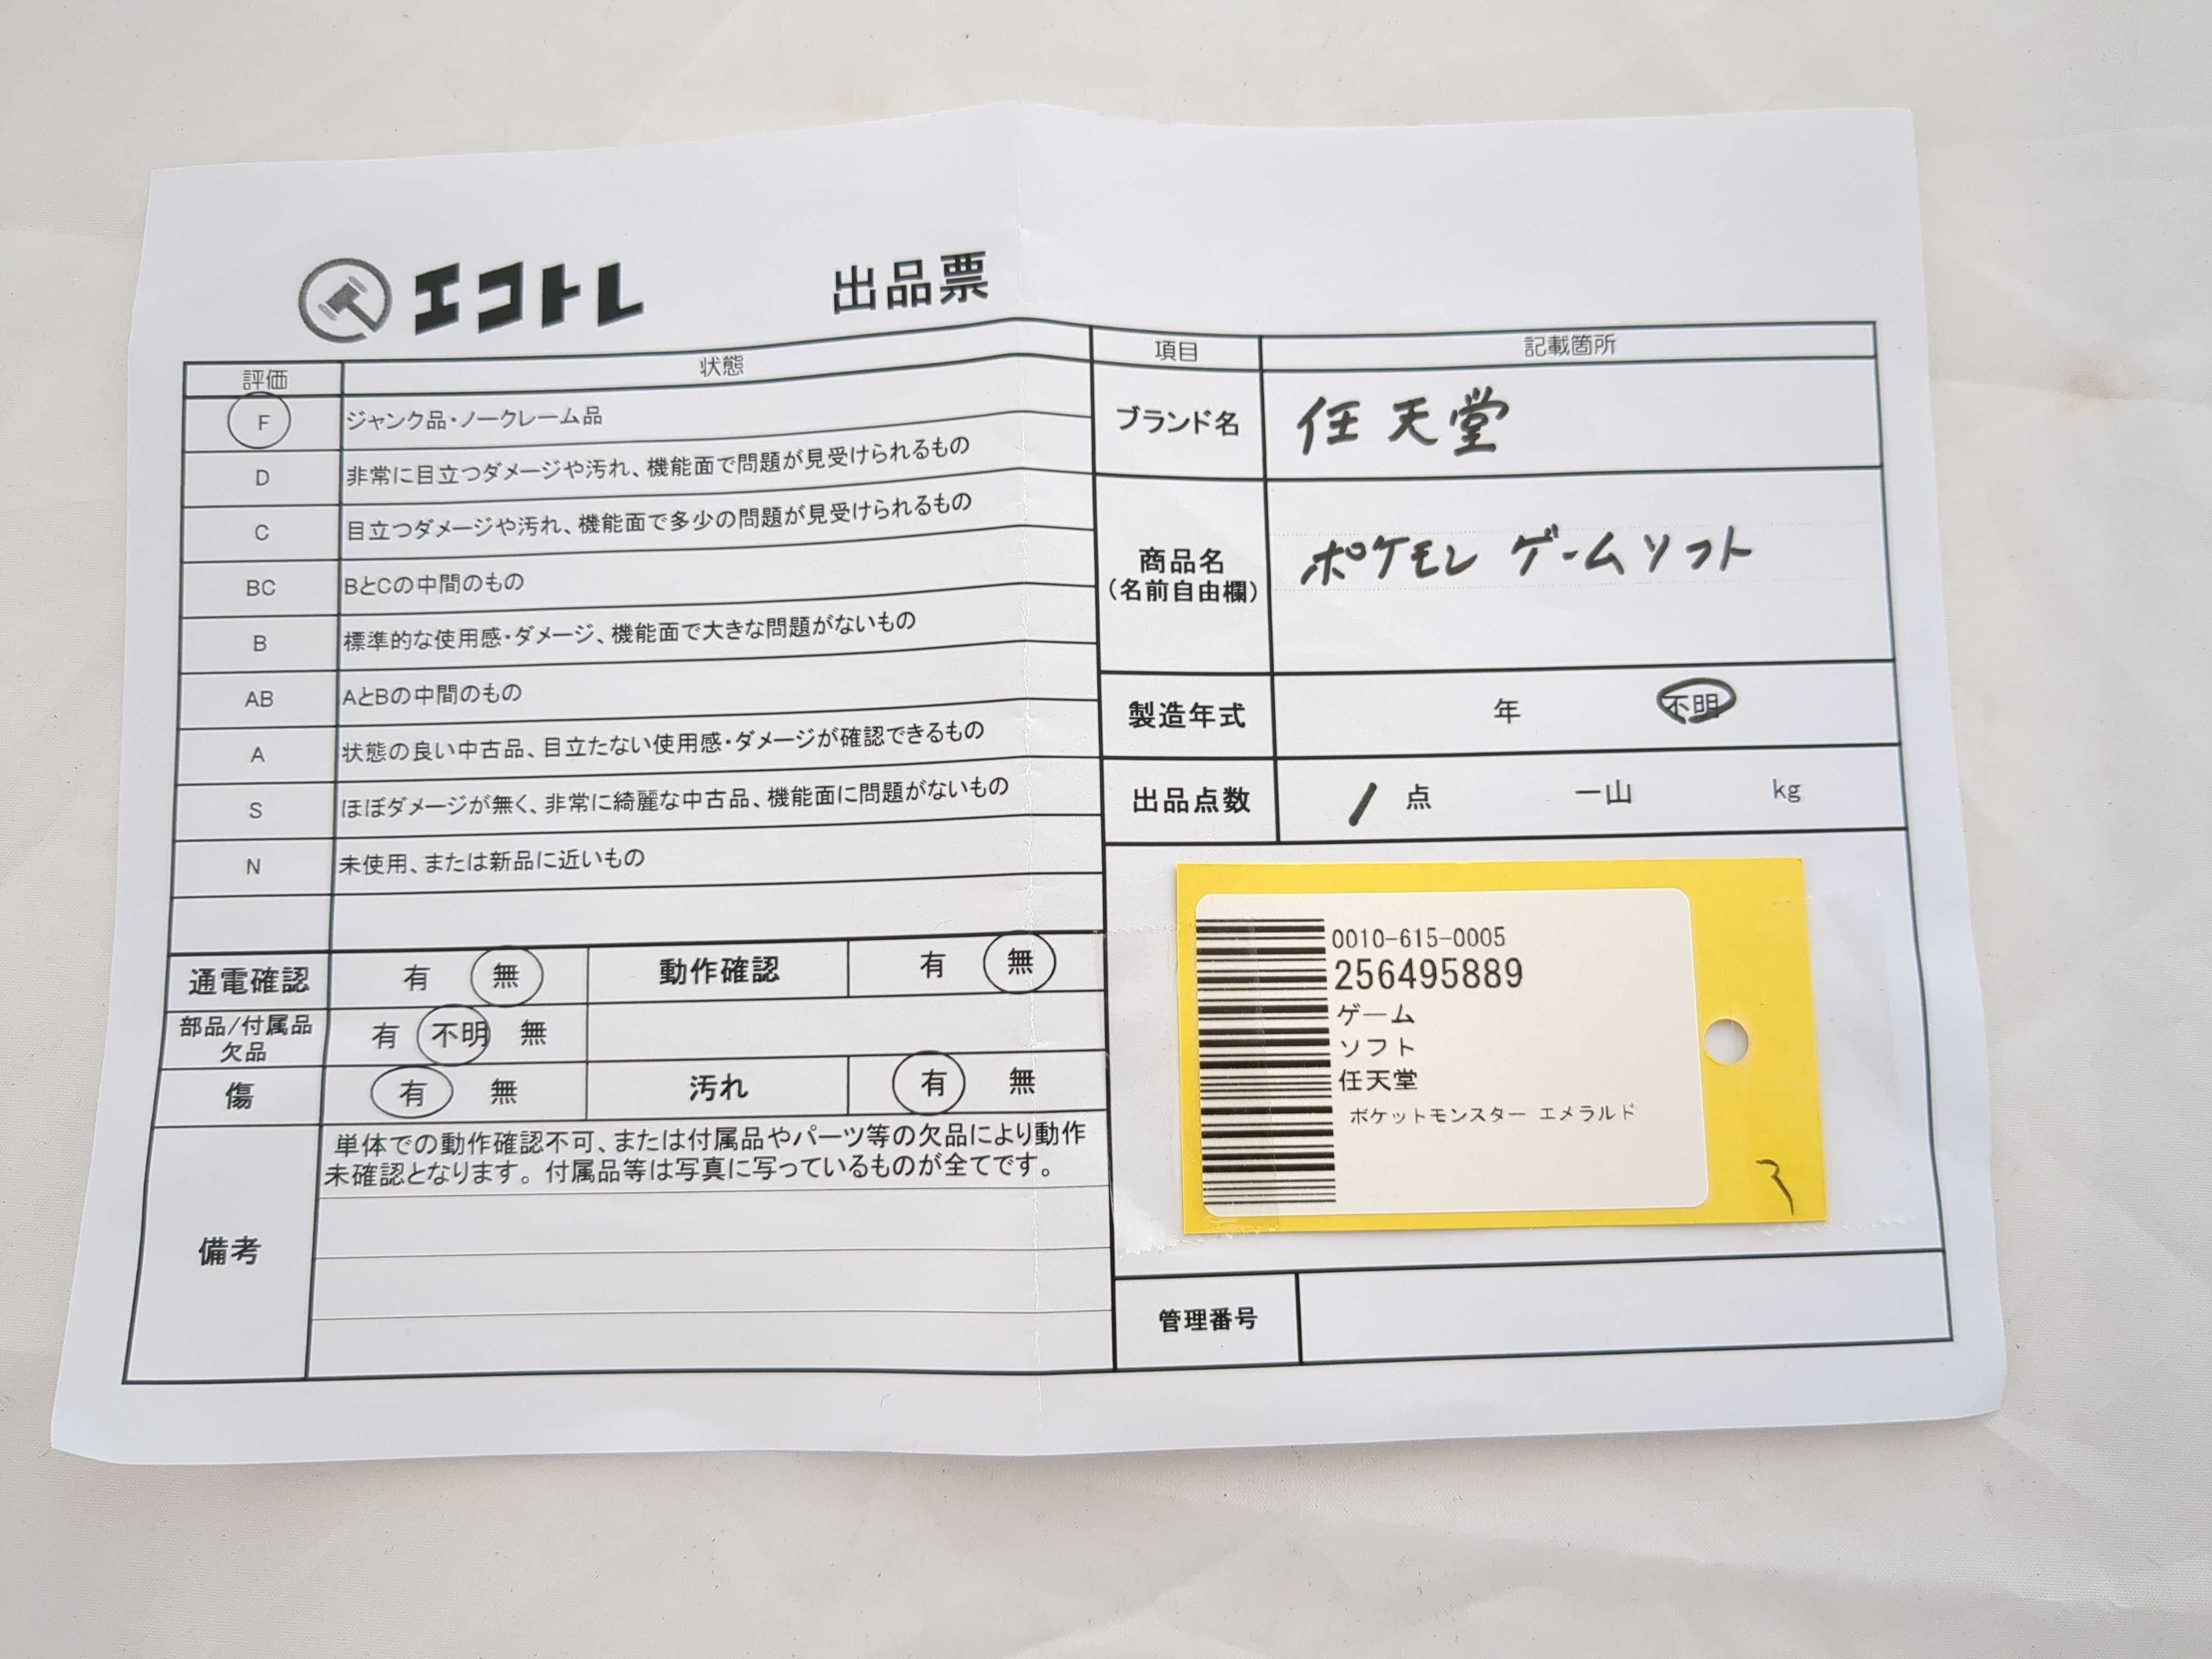 エコトレ 出品票
評価 状態
F ジャンク品・ノークレーム品
D 非常に目立つダメージや汚れ、機能面で問題が見受けられるもの
C 目立つダメージや汚れ、機能面で多少の問題が見受けられるもの
BC BとCの中間のもの
B 標準的な使用感・ダメージ、機能面で大きな問題がないもの
AB AとBの中間のもの
A 状態の良い中古品、目立たない使用感・ダメージが確認できるもの
S ほぼダメージが無く、非常に綺麗な中古品、機能面に問題がないもの
N 未使用、または新品に近いもの
通電確認 有 無 動作確認 有 無
部品/付属品
欠品 有 不明 無
傷 有 無 汚れ 有 無
備考
単体での動作確認不可、または付属品やパーツ等の欠品により動作
未確認となります。付属品等は写真に写っているものが全てです。
項目 記載箇所
ブランド名 任天堂
商品名
(名前自由欄) ポケモン ゲームソフト
製造年式 年 不明
出品点数 1 点 一山 kg
0010-615-0005
256495889
ゲーム
ソフト
任天堂
ポケットモンスター エメラルド
管理番号